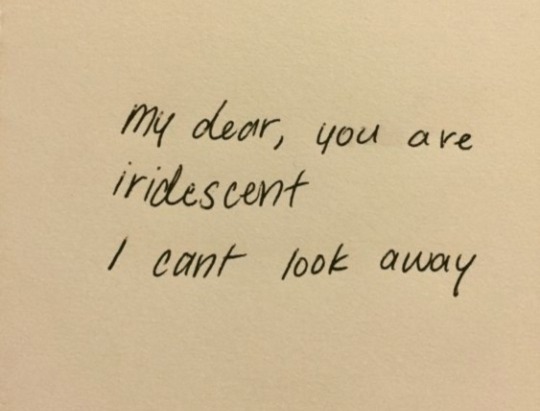 my dear, you are
iridescent
I cant look away